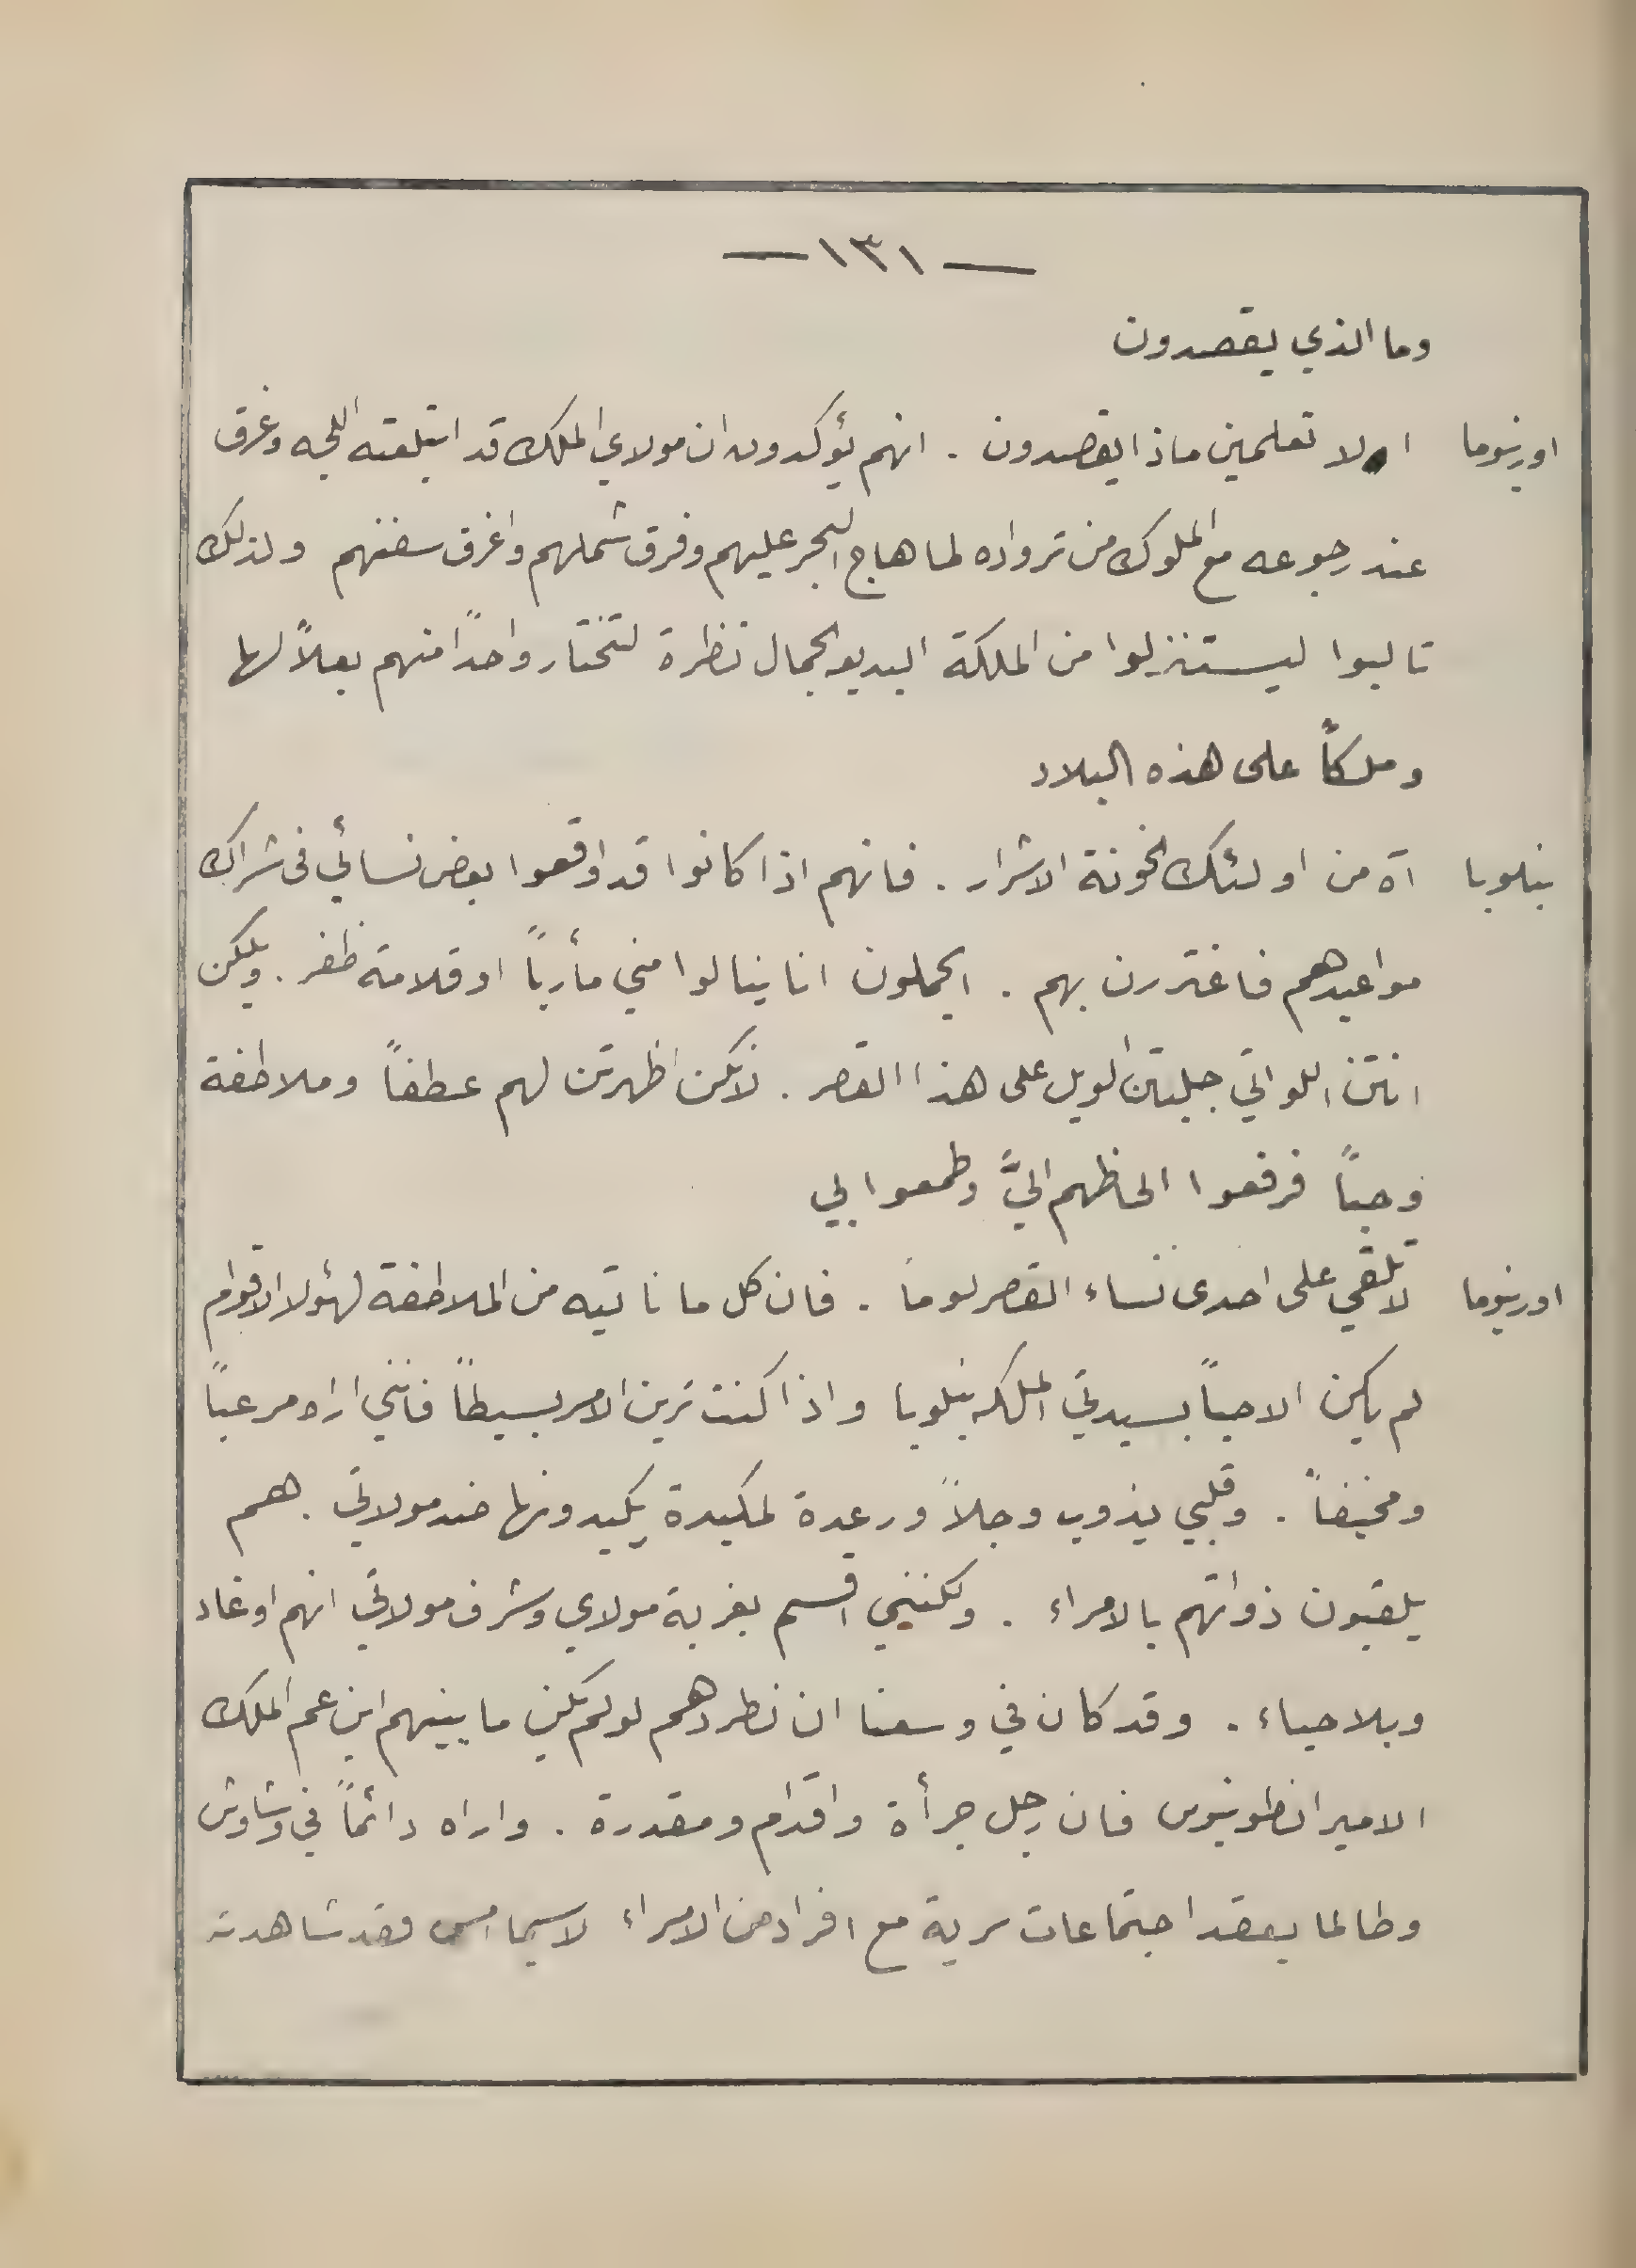 — ١٣١ —
وما الذي يقصدون
اورينوما اولا تعلمين ماذا يقصدون . انهم يؤكدون ان مولاي الملك قد ابتلعته اللجه وغرق
عند رجوعه مع الملوك من ترواده لما هاج البحر عليهم وفرق شملهم واغرق سفنهم ولذلك
تالبوا ليستنزلوا من الملكة البديع الجمال نظرة لتختار واحدًا منهم بعلاً لها
وملكاً على هذه البلاد
بنلوبا آه من اولئك الخونة الاشرار . فانهم اذا كانوا قد اوقعوا بعض نسائي في شراك
مواعيدهم فاغتررن بهم . ايحملون انا ينالوا مني مأرباً او قلامة ظفر . ويلكن
انتن اللواتي جلبتن الويل على هذا القصر . لانكن اظهرتن لهم عطفاً وملاطفة
وحباً فرفعوا الحاظهم اليَّ وطمعوا بي
اورينوما لا تلقي على احدى نساء القصر لوماً . فان كل ما ناتيه من الملاطفة لهؤلا الاقوام
لم يكن الا حباً بسيدتي الملكه بنلوبا واذا كنت ترين الامر بسيطاً فانني اراه مرعباً
ومخيفاً . وقلبي يذوب وجلاً ورعدة لمكيدة يكيدونها ضد مولاتي . هم
يلقبون ذواتهم بالامراء . ولكنني اقسم بغربة مولاي وشرف مولاتي انهم اوغاد
وبلا حياء . وقد كان في وسعنا ان نطردهم لو لم يكن ما بينهم ابن عم الملك
الامير انطونيوس فان رجل جرأة واقدام ومقدرة . واراه دائماً في وشاوش
وطالما يعقد اجتماعات سرية مع افراد من الامراء لاسيما امس فقد شاهدته